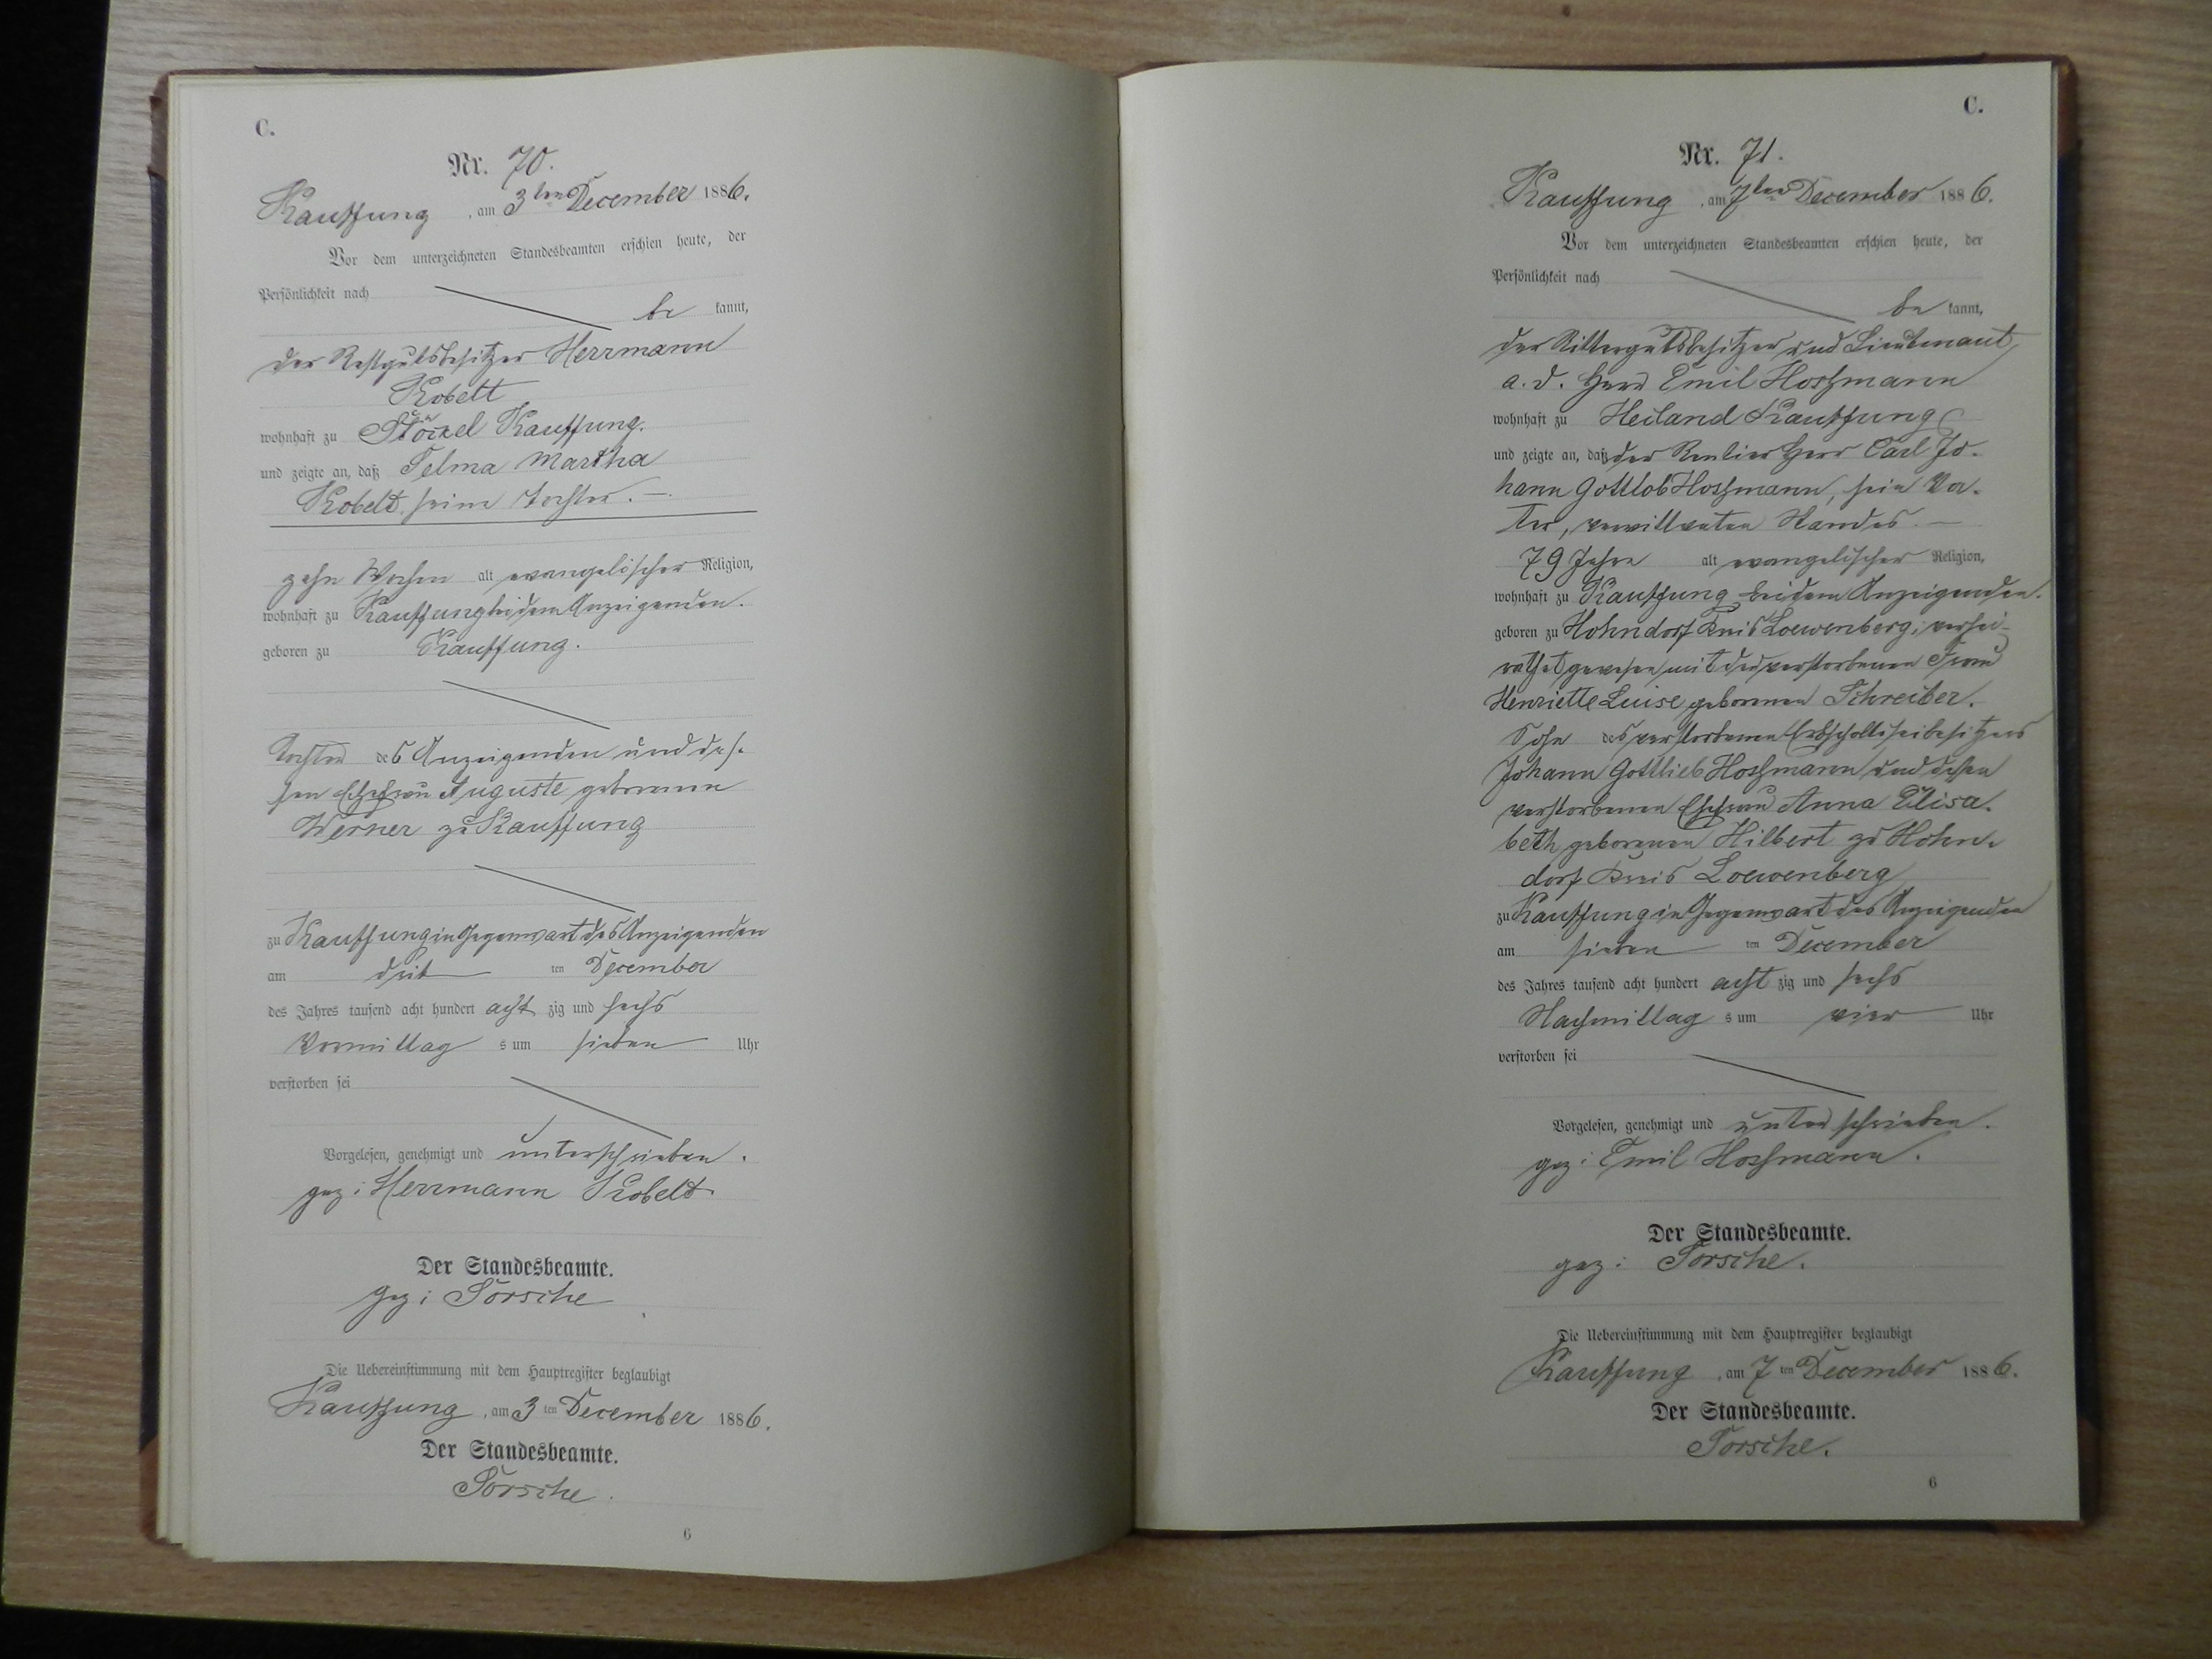 C.
Nr. 70.
Kauffung, am 3ten December 1886.
Vor dem unterzeichneten Standesbeamten erschien heute, der
Persönlichkeit nach
be kannt,
der Restgutsbesitzer Herrmann
Kobelt
wohnhaft zu Stöckel Kauffung.
und zeigte an, daß Selma Martha
Kobelt, seine Tochter. —.
zehn Wochen alt evangelischer Religion,
wohnhaft zu Kauffung bei dem Anzeigenden.
geboren zu Kauffung.
Tochter des Anzeigenden und des-
sen Ehefrau Auguste geborenen
Werner zu Kauffung
zu Kauffung in Gegenwart des Anzeigenden
am drit ten December
des Jahres tausend acht hundert acht zig und sechs
Vormittag s um sieben Uhr
verstorben sei
Vorgelesen, genehmigt und unterschrieben.
gez: Herrmann Kobelt.
Der Standesbeamte.
gez: Sorsche
Die Uebereinstimmung mit dem Hauptregister beglaubigt
Kauffung, am 3 ten December 1886.
Der Standesbeamte.
Sorsche.
6
C.
Nr. 71.
Kauffung, am 7ten December 1886.
Vor dem unterzeichneten Standesbeamten erschien heute, der
Persönlichkeit nach
be kannt,
der Rittergutsbesitzer und Lieutenant
a. D. Herr Emil Hoffmann
wohnhaft zu Heiland Kauffung
und zeigte an, daß der Rentier Herr Carl Jo-
hann Gottlob Hoffmann, sein Va-
ter, verwittweten Standes. —
79 Jahre alt evangelischer Religion,
wohnhaft zu Kauffung bei dem Anzeigenden.
geboren zu Hohndorf Kreis Loewenberg; verhei-
rathet gewesen mit der verstorbenen Frau
Henriette Luise geborenen Schreiber.
Sohn des verstorbenen Erbscholtiseibesitzers
Johann Gottlieb Hoffmann und dessen
verstorbenen Ehefrau Anna Elisa-
beth geborenen Hilbert zu Hohn-
dorf Kreis Loewenberg
zu Kauffung in Gegenwart des Anzeigenden
am sieben ten December
des Jahres tausend acht hundert acht zig und sechs
Nachmittag s um vier Uhr
verstorben sei
Vorgelesen, genehmigt und unterschrieben.
gez: Emil Hoffmann.
Der Standesbeamte.
gez: Sorsche.
Die Uebereinstimmung mit dem Hauptregister beglaubigt
Kauffung, am 7 ten December 1886.
Der Standesbeamte.
Sorsche.
6